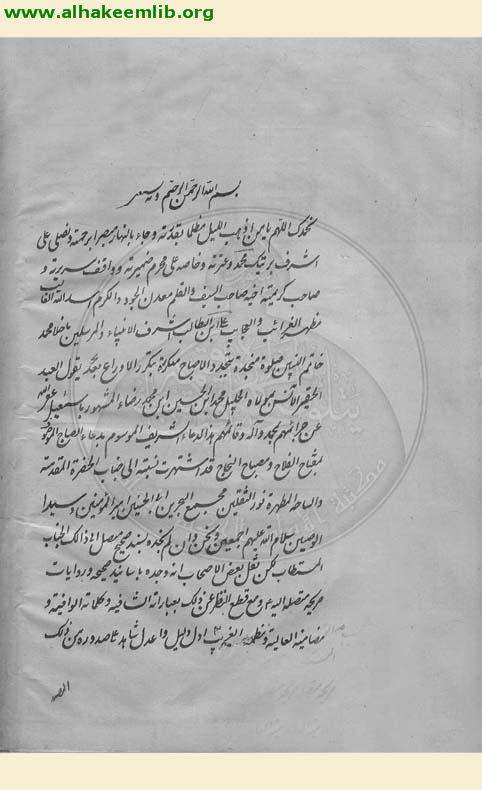 www.alhakeemlib.org
بسم الله الرحمن الرحیم وبه نستعین
نحمدک اللهم یا من اذهب اللیل مظلما بقدرته وجاء بالنهار مبصرا برحمته ونصلی علی
اشرف بریتک محمد وعترته وخاصه علی محرم ضمیرته وواقف سریرته و
صاحب کریمته اخیه صاحب السیف والقلم معدن الجود والکرم اسد الله الغالب
مظهر الغرائب والعجایب علی بن ابیطالب اشرف الانبیاء والمرسلین محمد
خاتم النبیین صلوة متجددة بتجدد الاصباح متکررة بتکرر الاوراع بعد یقول العبد
الحقیر الآنس بمولاه الجلیل محمد ابن الحسین ابن محمد رضاء المشهور باسمعیل عفی الله
عن جرائمهم بمحمد وآله وقائمهم هذا الدعاء الشریف الموسوم بدعاء الصباح
لمفتاح الفلاح ومصباح النجاح قد اشتهرت نسبته الی جناب الحضرة المقدسة
والساحة المطهرة نور الثقلین مجمع البحرین ابی الحسنین امیر المؤمنین وسید
الوصیین سلام الله علیهم اجمعین ونحن وان لم نجده بسند صحیح متصل الی ذالک الجناب
المستطاب لکن نقل بعض الاصحاب انه وجده باسانید صحیحه وروایات
صریحه متصله الیه ومع قطع النظر عن ذلک بعباراته الشافیه وکلماته الوافیة و
مضامینه العالیة ونظمه الغریب ادل دلیل واعدل شاهد علی صدوره من ذلک